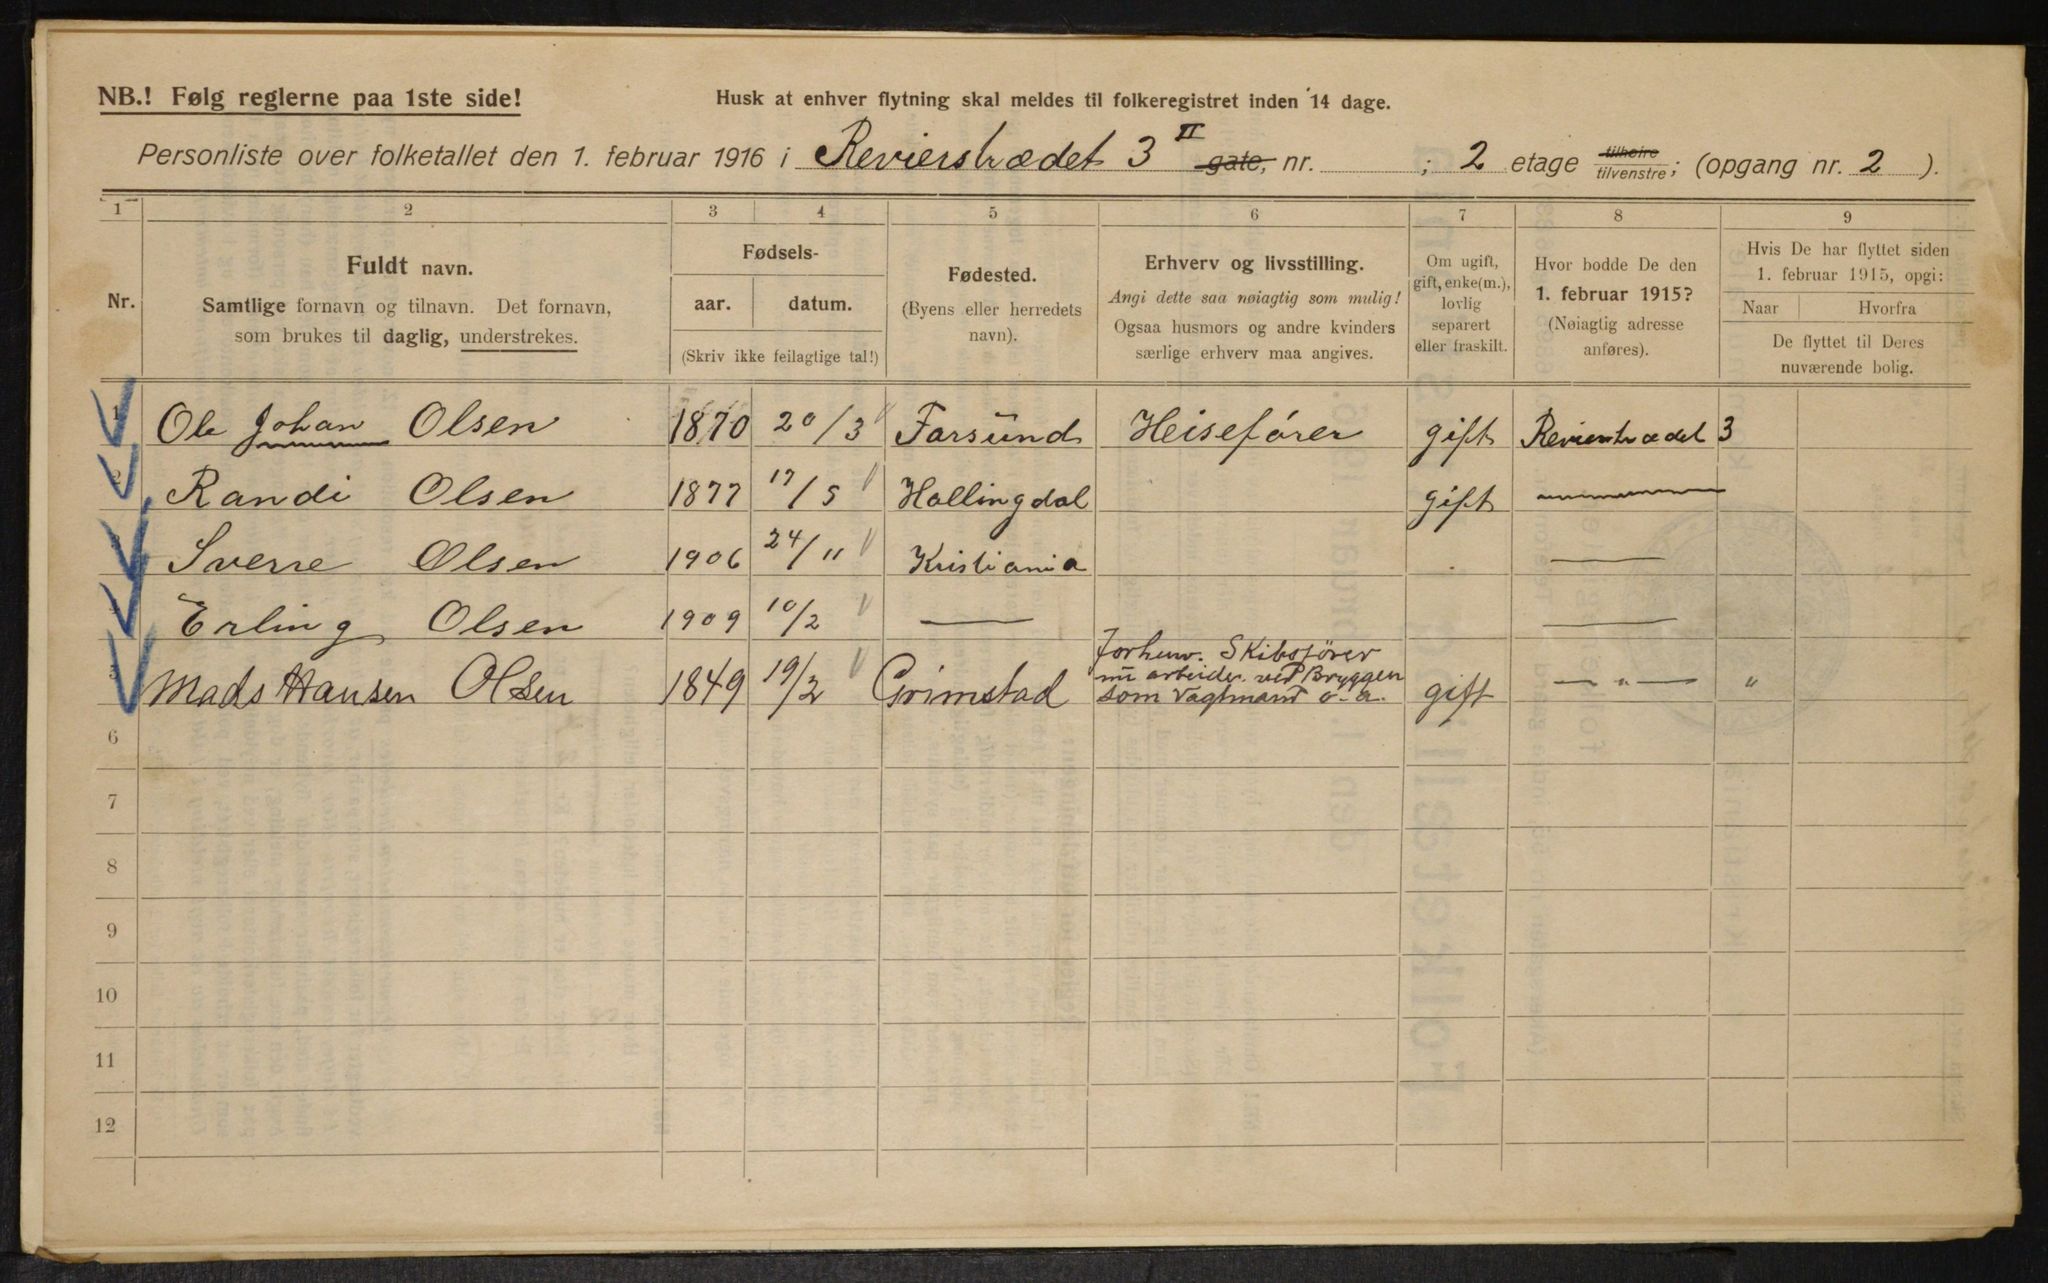 NB.! Følg reglerne paa 1ste side!
Husk at enhver flytning skal meldes til folkeregistret inden 14 dage.
Personliste over folketallet den 1. februar 1916 i Revierstrædet 3 II gate, nr. ; 2 etage tilhøire tilvenstre; (opgang nr. 2 ).
1 2 3 4 5 6 7 8 9
Nr.
Fuldt navn.
Samtlige fornavn og tilnavn. Det fornavn,
som brukes til daglig, understrekes.
Fødsels-
aar. datum.
(Skriv ikke feilagtige tal!)
Fødested.
(Byens eller herredets
navn).
Erhverv og livsstilling.
Angi dette saa nøiagtig som mulig!
Ogsaa husmors og andre kvinders
særlige erhverv maa angives.
Om ugift,
gift, enke(m.),
lovlig
separert
eller fraskilt.
Hvor bodde De den
1. februar 1915?
(Nøiagtig adresse
anføres).
Hvis De har flyttet siden
1. februar 1915, opgi:
Naar Hvorfra
De flyttet til Deres
nuværende bolig.
1 Ole Johan Olsen 1870 20/3 Farsund Heisefører gift Revierstrædet 3
2 Randi Olsen 1877 17/5 Hallingdal gift
Sverre Olsen 1906 24/11 Kristiania —
Erling Olsen 1909 10/2 — —
5 Mads Hansen Olsen 1849 19/2 Grimstad Forhenv. Skibsfører
nu arbeider ved Bryggen
som Vagtmand o-a. gift —"— "
6
7
8
9
10
11
12